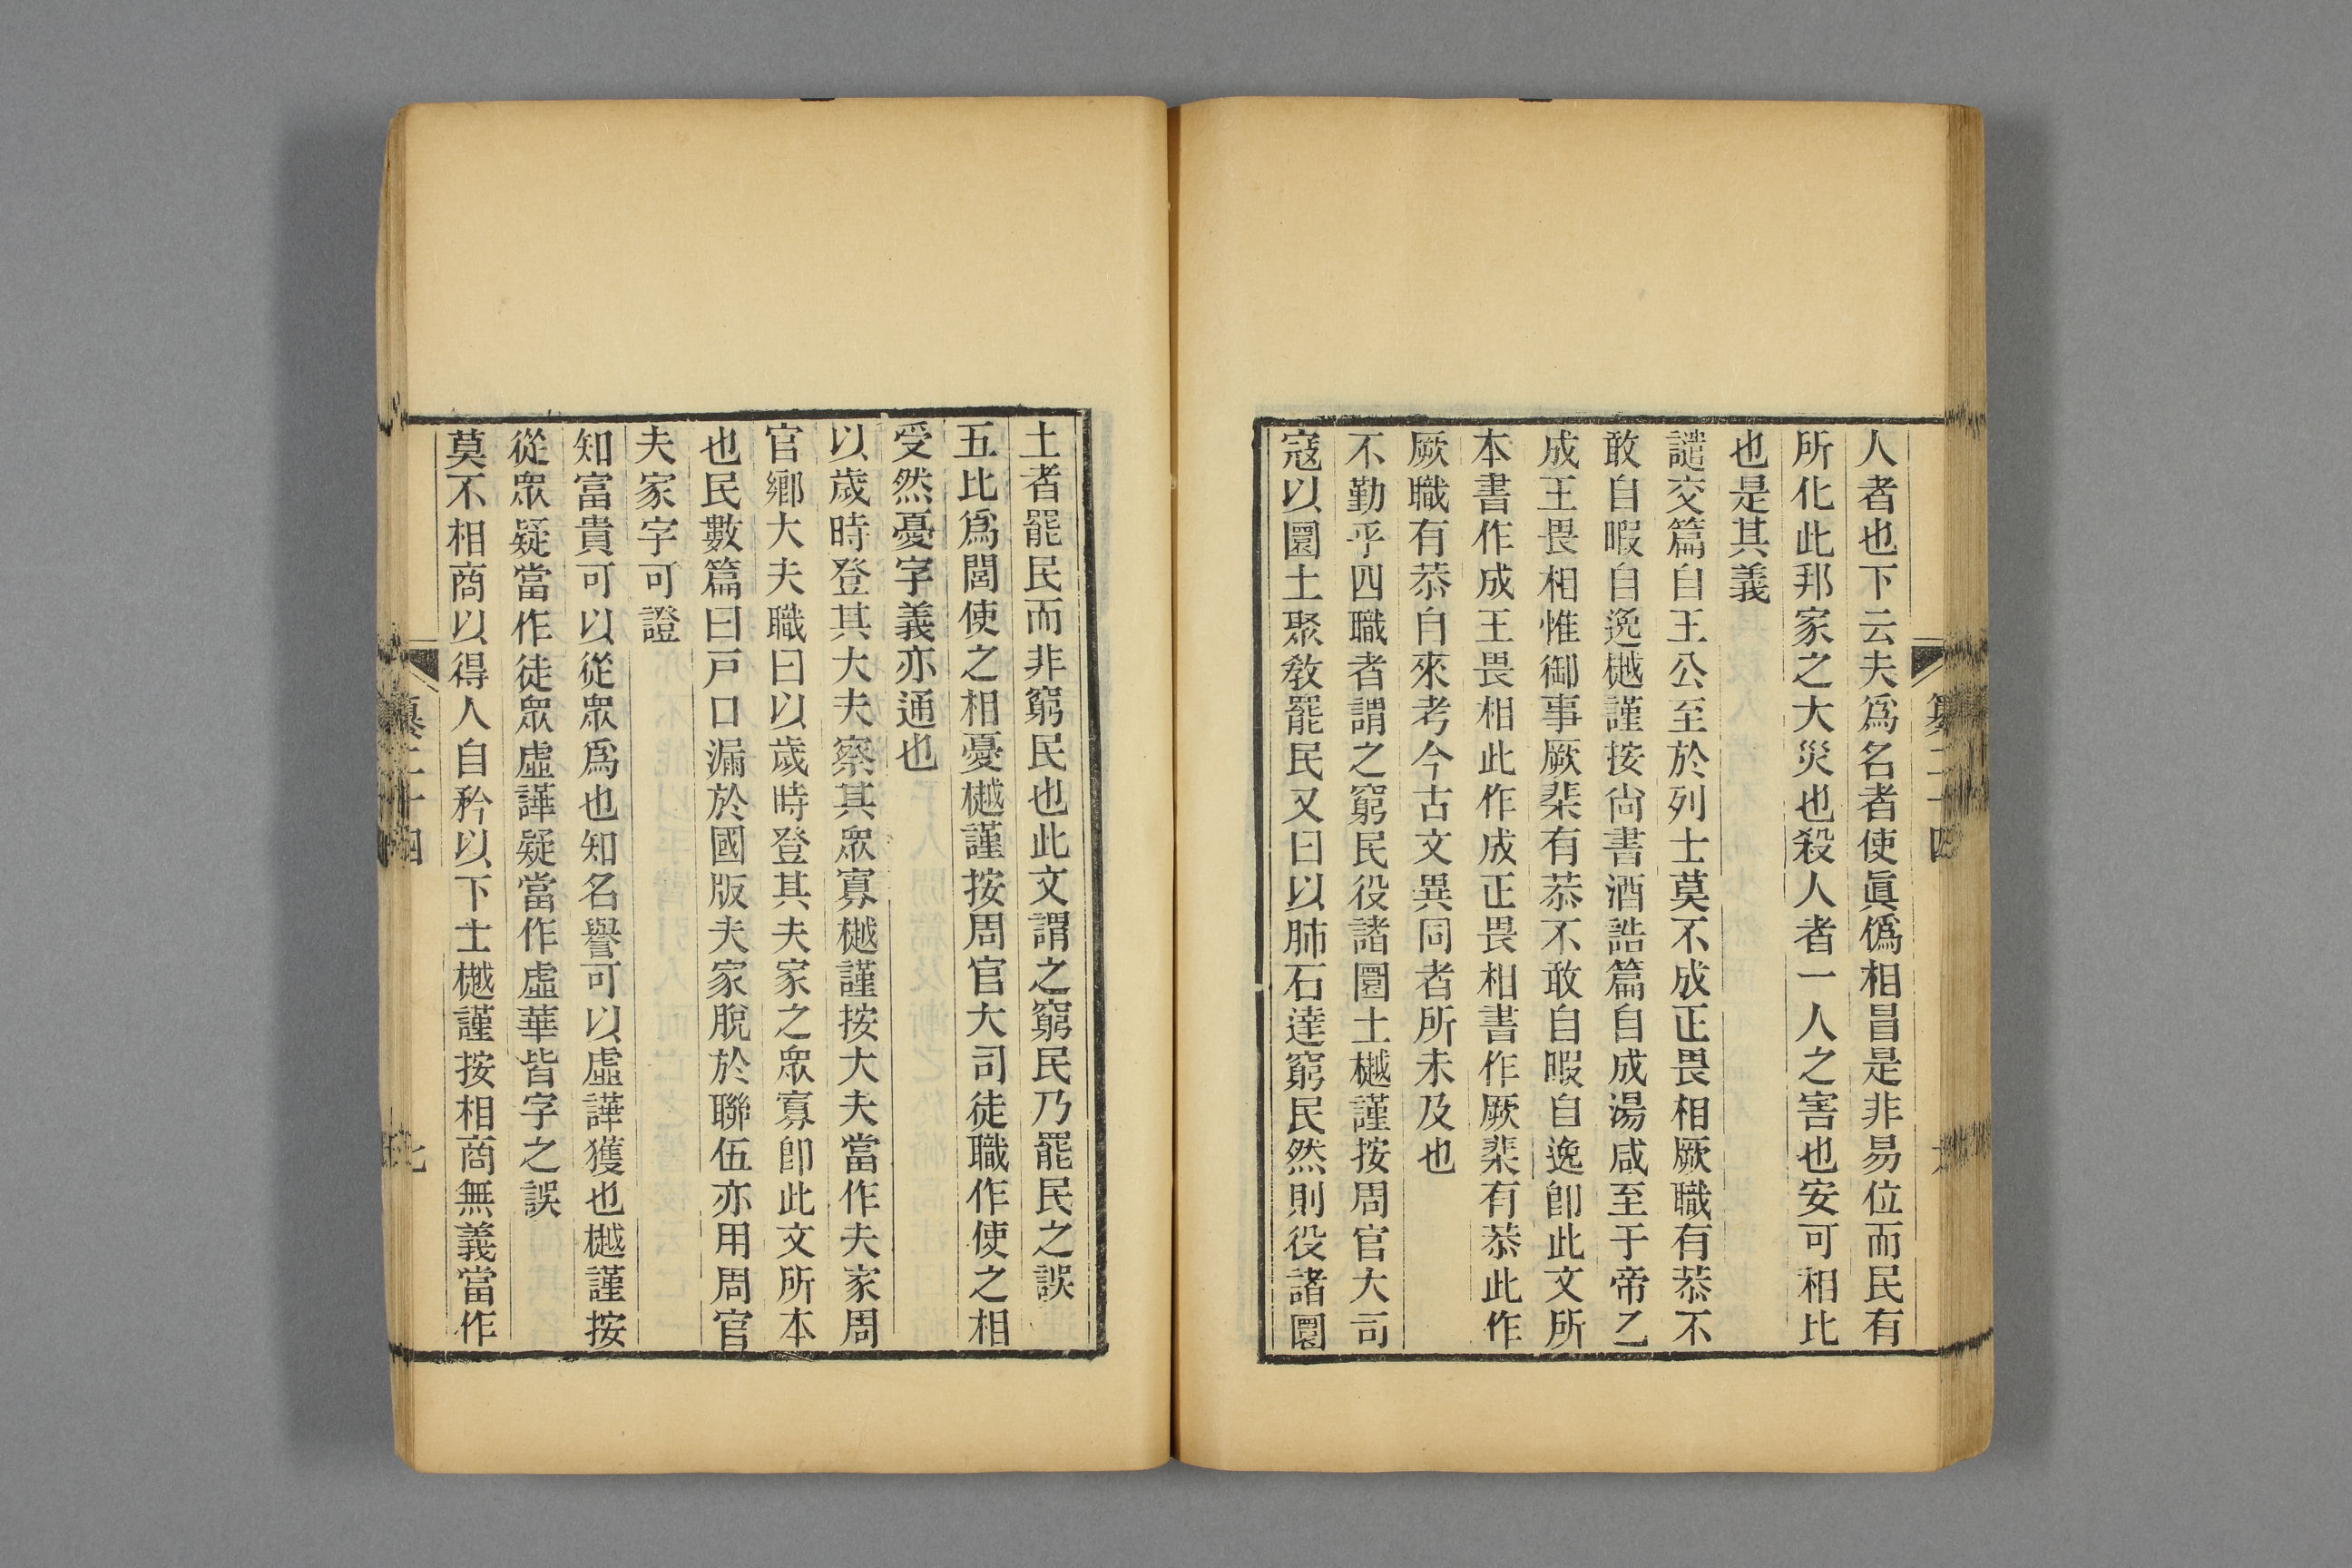 人者也下云夫爲名者使眞僞相昌是非易位而民有
所化此邦家之大災也殺人者一人之害也安可相比
也是其義
譴交篇自王公至於列士莫不成正畏相厥職有恭不
敢自暇自逸樾謹按尙書酒誥篇自成湯咸至于帝乙
成王畏相惟御事厥棐有恭不敢自暇自逸卽此文所
本書作成王畏相此作成正畏相書作厥棐有恭此作
厥職有恭自來考今古文異同者所未及也
不勤乎四職者謂之窮民役諸圜土樾謹按周官大司
寇以圜土聚敎罷民又曰以肺石達窮民然則役諸圜
土者罷民而非窮民也此文謂之窮民乃罷民之誤
五比爲閭使之相憂樾謹按周官大司徒職作使之相
受然憂字義亦通也
以歲時登其大夫察其衆寡樾謹按大夫當作夫家周
官鄉大夫職曰以歲時登其夫家之衆寡卽此文所本
也民數篇曰戸口漏於國版夫家脫於聯伍亦用周官
夫家字可證
知富貴可以從衆爲也知名譽可以虛譁獲也樾謹按
從衆疑當作徒衆虛譁疑當作虛華皆字之誤
莫不相商以得人自矜以下士樾謹按相商無義當作
纂二十四
七